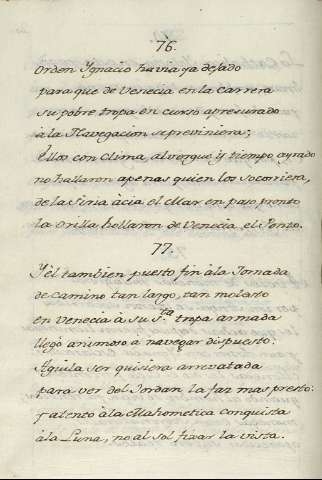 76.
Orden Ygnacio havia ya dejado
para que de Venecia en la Carrera
su pobre tropa en curso apresurado
à la Navegacion se previniera;
Ellos con Clima, alvergue, y tiempo ayrado
no hallaron apenas quien los Socorriera,
de la Siria àcia el Mar en paso pronto
la Orilla hollaron de Venecia el Ponto.
77.
Y èl tambien puesto fin à la Jornada
de camino tan largo, tan molesto
en Venecia à su S.ta tropa armada
llegò animoso à navegar dispuesto:
Aguila ser quisiera arrevatada
para ver del Jordan la faz mas presto:
y atento à la Mahometica Conquista
à la Luna, no al Sol fixar la vista.